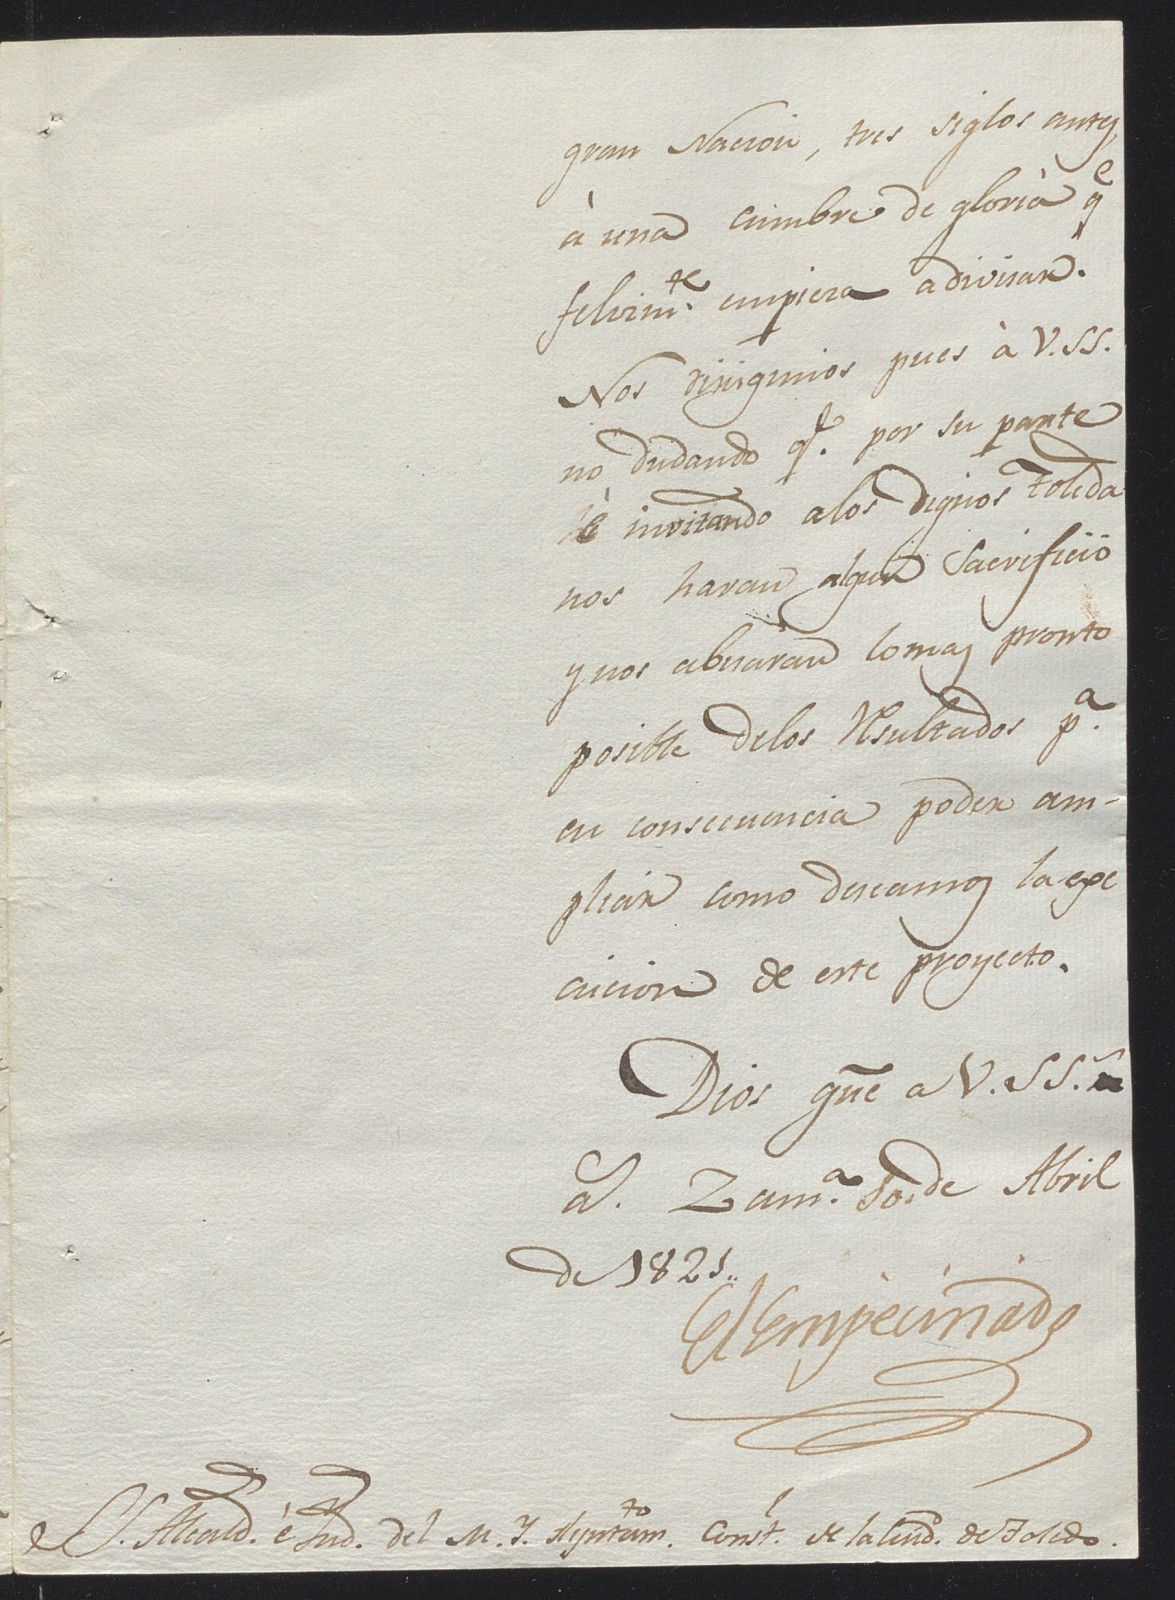 gran Nacion, tres siglos antes,
à una cumbre de gloria q^e
felizm^te. empieza a divisar.
Nos dirigimos pues à V.SS.
no dudando q^e. por su parte
è invitando a los dignos Toleda
nos haran algun sacrificio
y nos abisaran lo mas pronto
posible de los Resultados p^a.
en consecuencia poder am-
pliar como deseamos la exe
cucion de este proyecto.
Dios gue a V.SS. m
a^s. Zam^a. 10. de Abril
de 1821.
El Empecinado
S.S. Alcald. è Ind. del M. Y. Ayuntam^to. Const^l. de la Ciud. de Toledo.